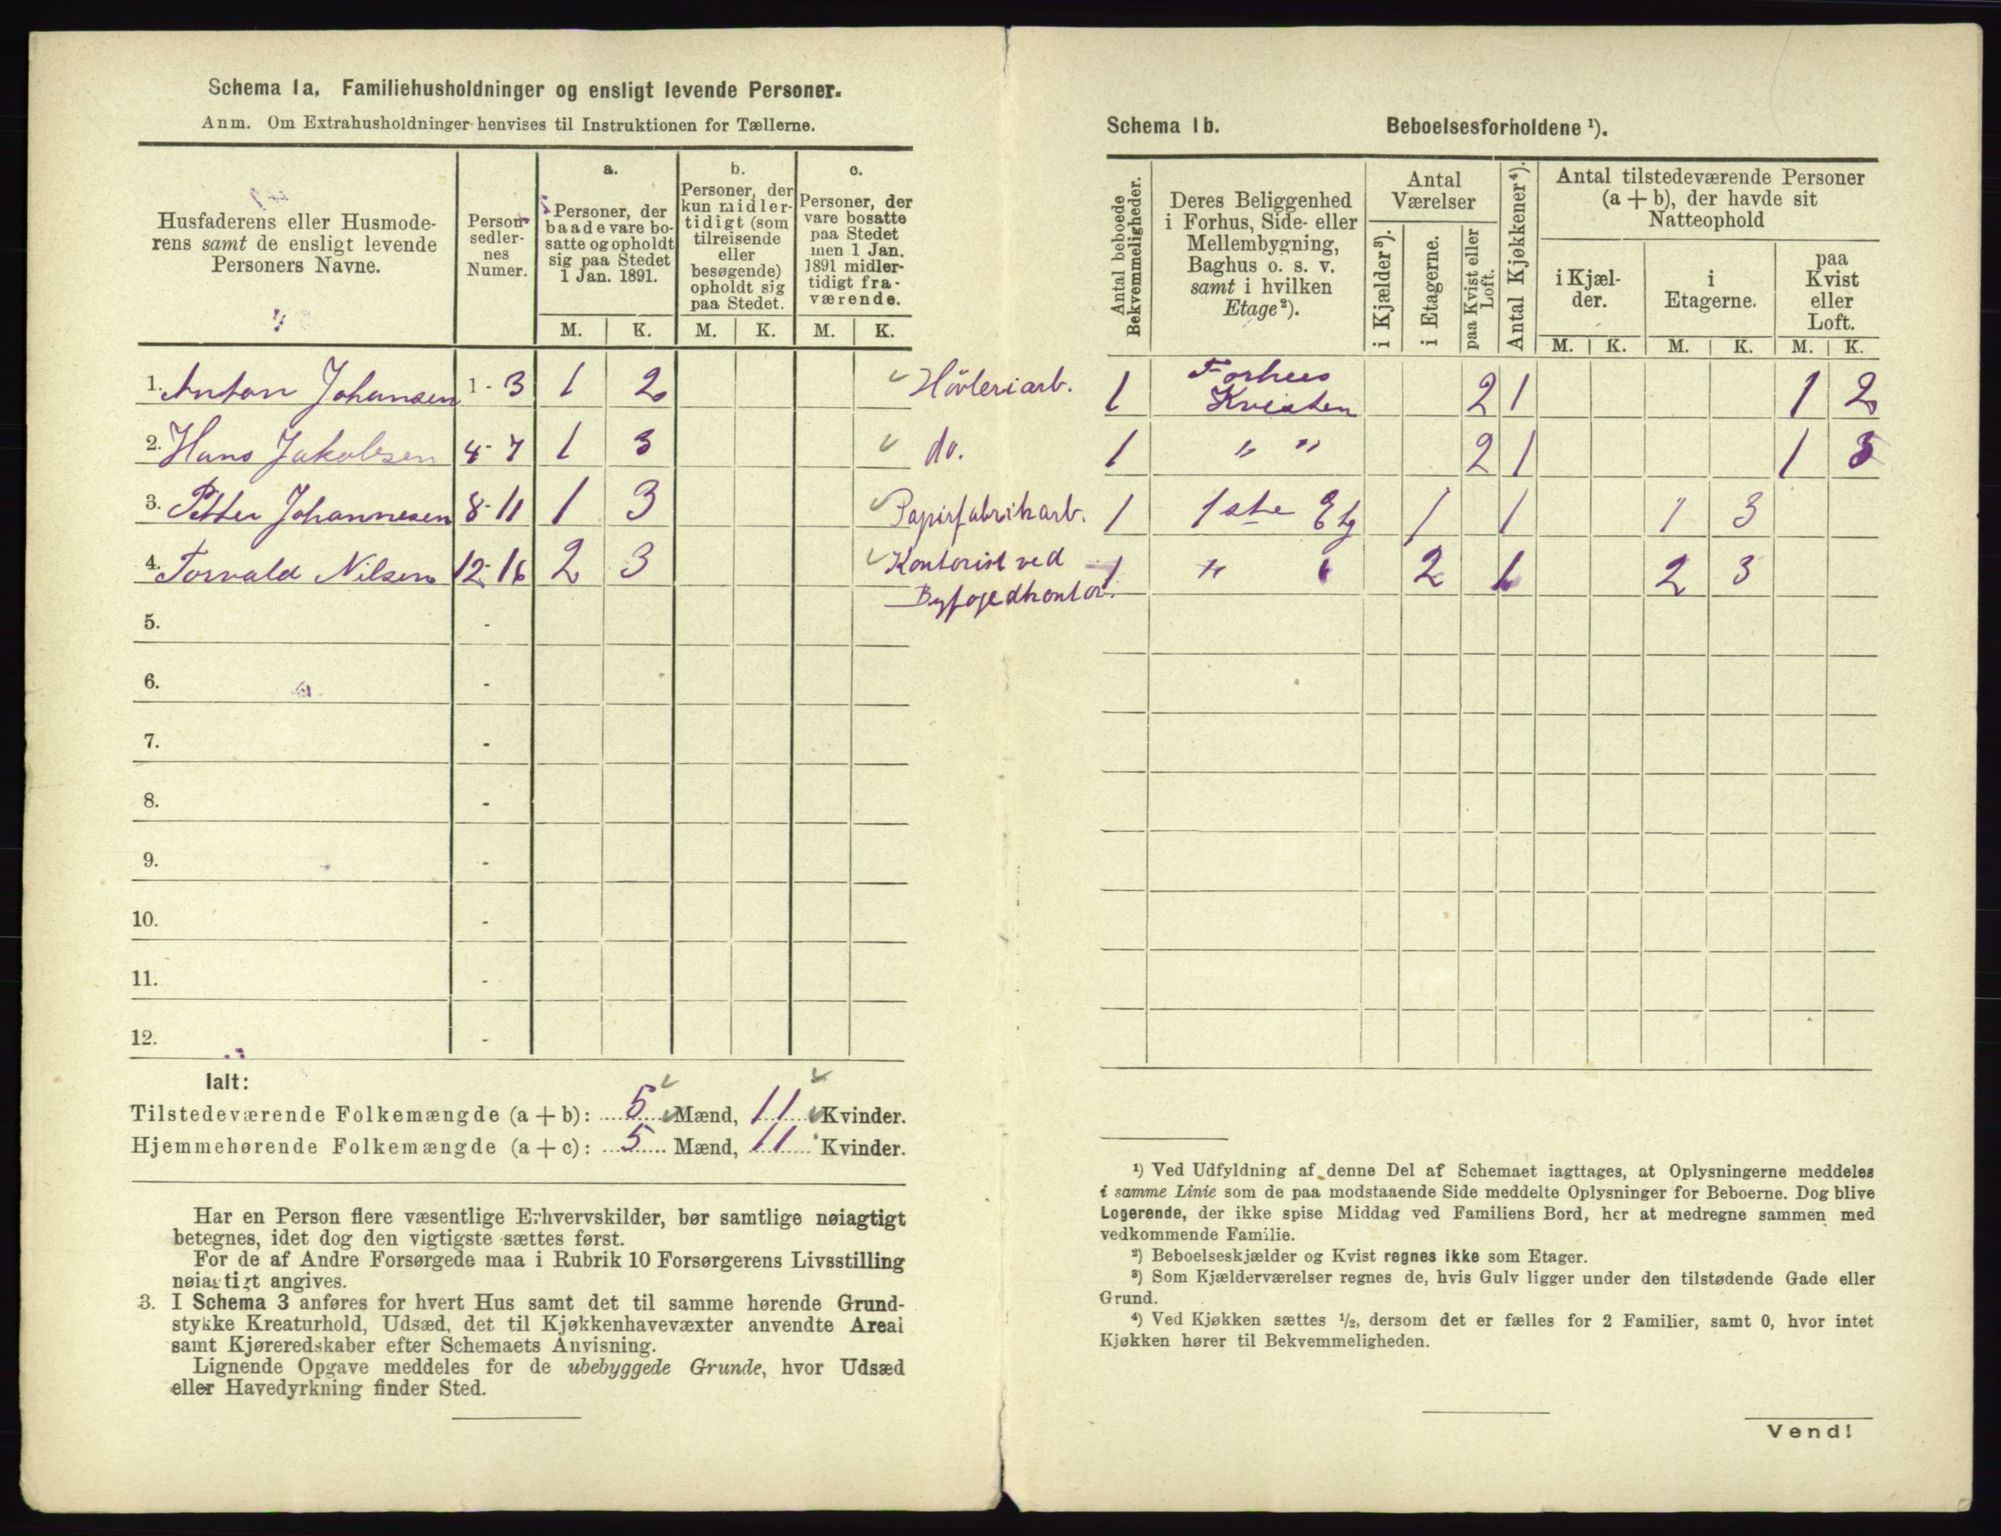 Schema 1a. Familiehusholdninger og ensligt levende Personer.
Anm. Om Extrahusholdninger henvises til Instruktionen for Tællerne.
Husfaderens eller Husmode-
rens samt de ensligt levende
Personers Navne.
Person-
sedler-
nes
Numer.
a.
Personer, der
baade vare bo-
satte og opholdt
sig paa Stedet
1 Jan. 1891.
b.
Personer, der
kun midler-
tidigt (som
tilreisende
eller
besøgende)
opholdt sig
paa Stedet.
c.
Personer, der
vare bosatte
paa Stedet
men 1 Jan.
1891 midler-
tidigt fra-
værende.
M. K. M. K. M. K.
1. Anton Johansen 1-3 1 2 Høvleriarb.
2. Hans Jakobsen 4-7 1 3 do.
3. Petter Johannesen 8-11 1 3 Papirfabrikarb.
4. Torvald Nilsen 12-16 2 3 Kontorist ved
Byfogedkontor.
5. -
6. -
7. -
8. -
9. -
10. -
11. -
12. -
Ialt:
Tilstedeværende Folkemængde (a + b): 5 Mænd, 11 Kvinder.
Hjemmehørende Folkemængde (a + c): 5 Mænd, 11 Kvinder.
Har en Person flere væsentlige Erhvervskilder, bør samtlige nøiagtigt
betegnes, idet dog den vigtigste sættes først.
For de af Andre Forsørgede maa i Rubrik 10 Forsørgerens Livsstilling
nøiagtigt angives.
3. I Schema 3 anføres for hvert Hus samt det til samme hørende Grund-
stykke Kreaturhold, Udsæd, det til Kjøkkenhavevæxter anvendte Areal
samt Kjøreredskaber efter Schemaets Anvisning.
Lignende Opgave meddeles for de ubebyggede Grunde, hvor Udsæd
eller Havedyrkning finder Sted.
Schema 1b. Beboelsesforholdene ¹).
Antal beboede
Bekvemmeligheder.
Deres Beliggenhed
i Forhus, Side- eller
Mellembygning,
Baghus o. s. v.
samt i hvilken
Etage²).
Antal
Værelser
i Kjælder³).
i Etagerne.
paa Kvist eller
Loft.
Antal Kjøkkener⁴).
Antal tilstedeværende Personer
(a + b), der havde sit
Natteophold
i Kjæl-
der.
i
Etagerne.
paa
Kvist
eller
Loft.
M. K. M. K. M. K.
1 Forhus
Kvisten 2 1 1 2
1 " " 2 1 1 3
1 1ste Etg 1 1 1 3
1 " " 2 1 2 3
¹) Ved Udfyldning af denne Del af Schemaet iagttages, at Oplysningerne meddeles
i samme Linie som de paa modstaaende Side meddelte Oplysninger for Beboerne. Dog blive
Logerende, der ikke spise Middag ved Familiens Bord, her at medregne sammen med
vedkommende Familie.
²) Beboelseskjælder og Kvist regnes ikke som Etager.
³) Som Kjælderværelser regnes de, hvis Gulv ligger under den tilstødende Gade eller
Grund.
⁴) Ved Kjøkken sættes ½, dersom det er fælles for 2 Familier, samt 0, hvor intet
Kjøkken hører til Bekvemmeligheden.
Vend!